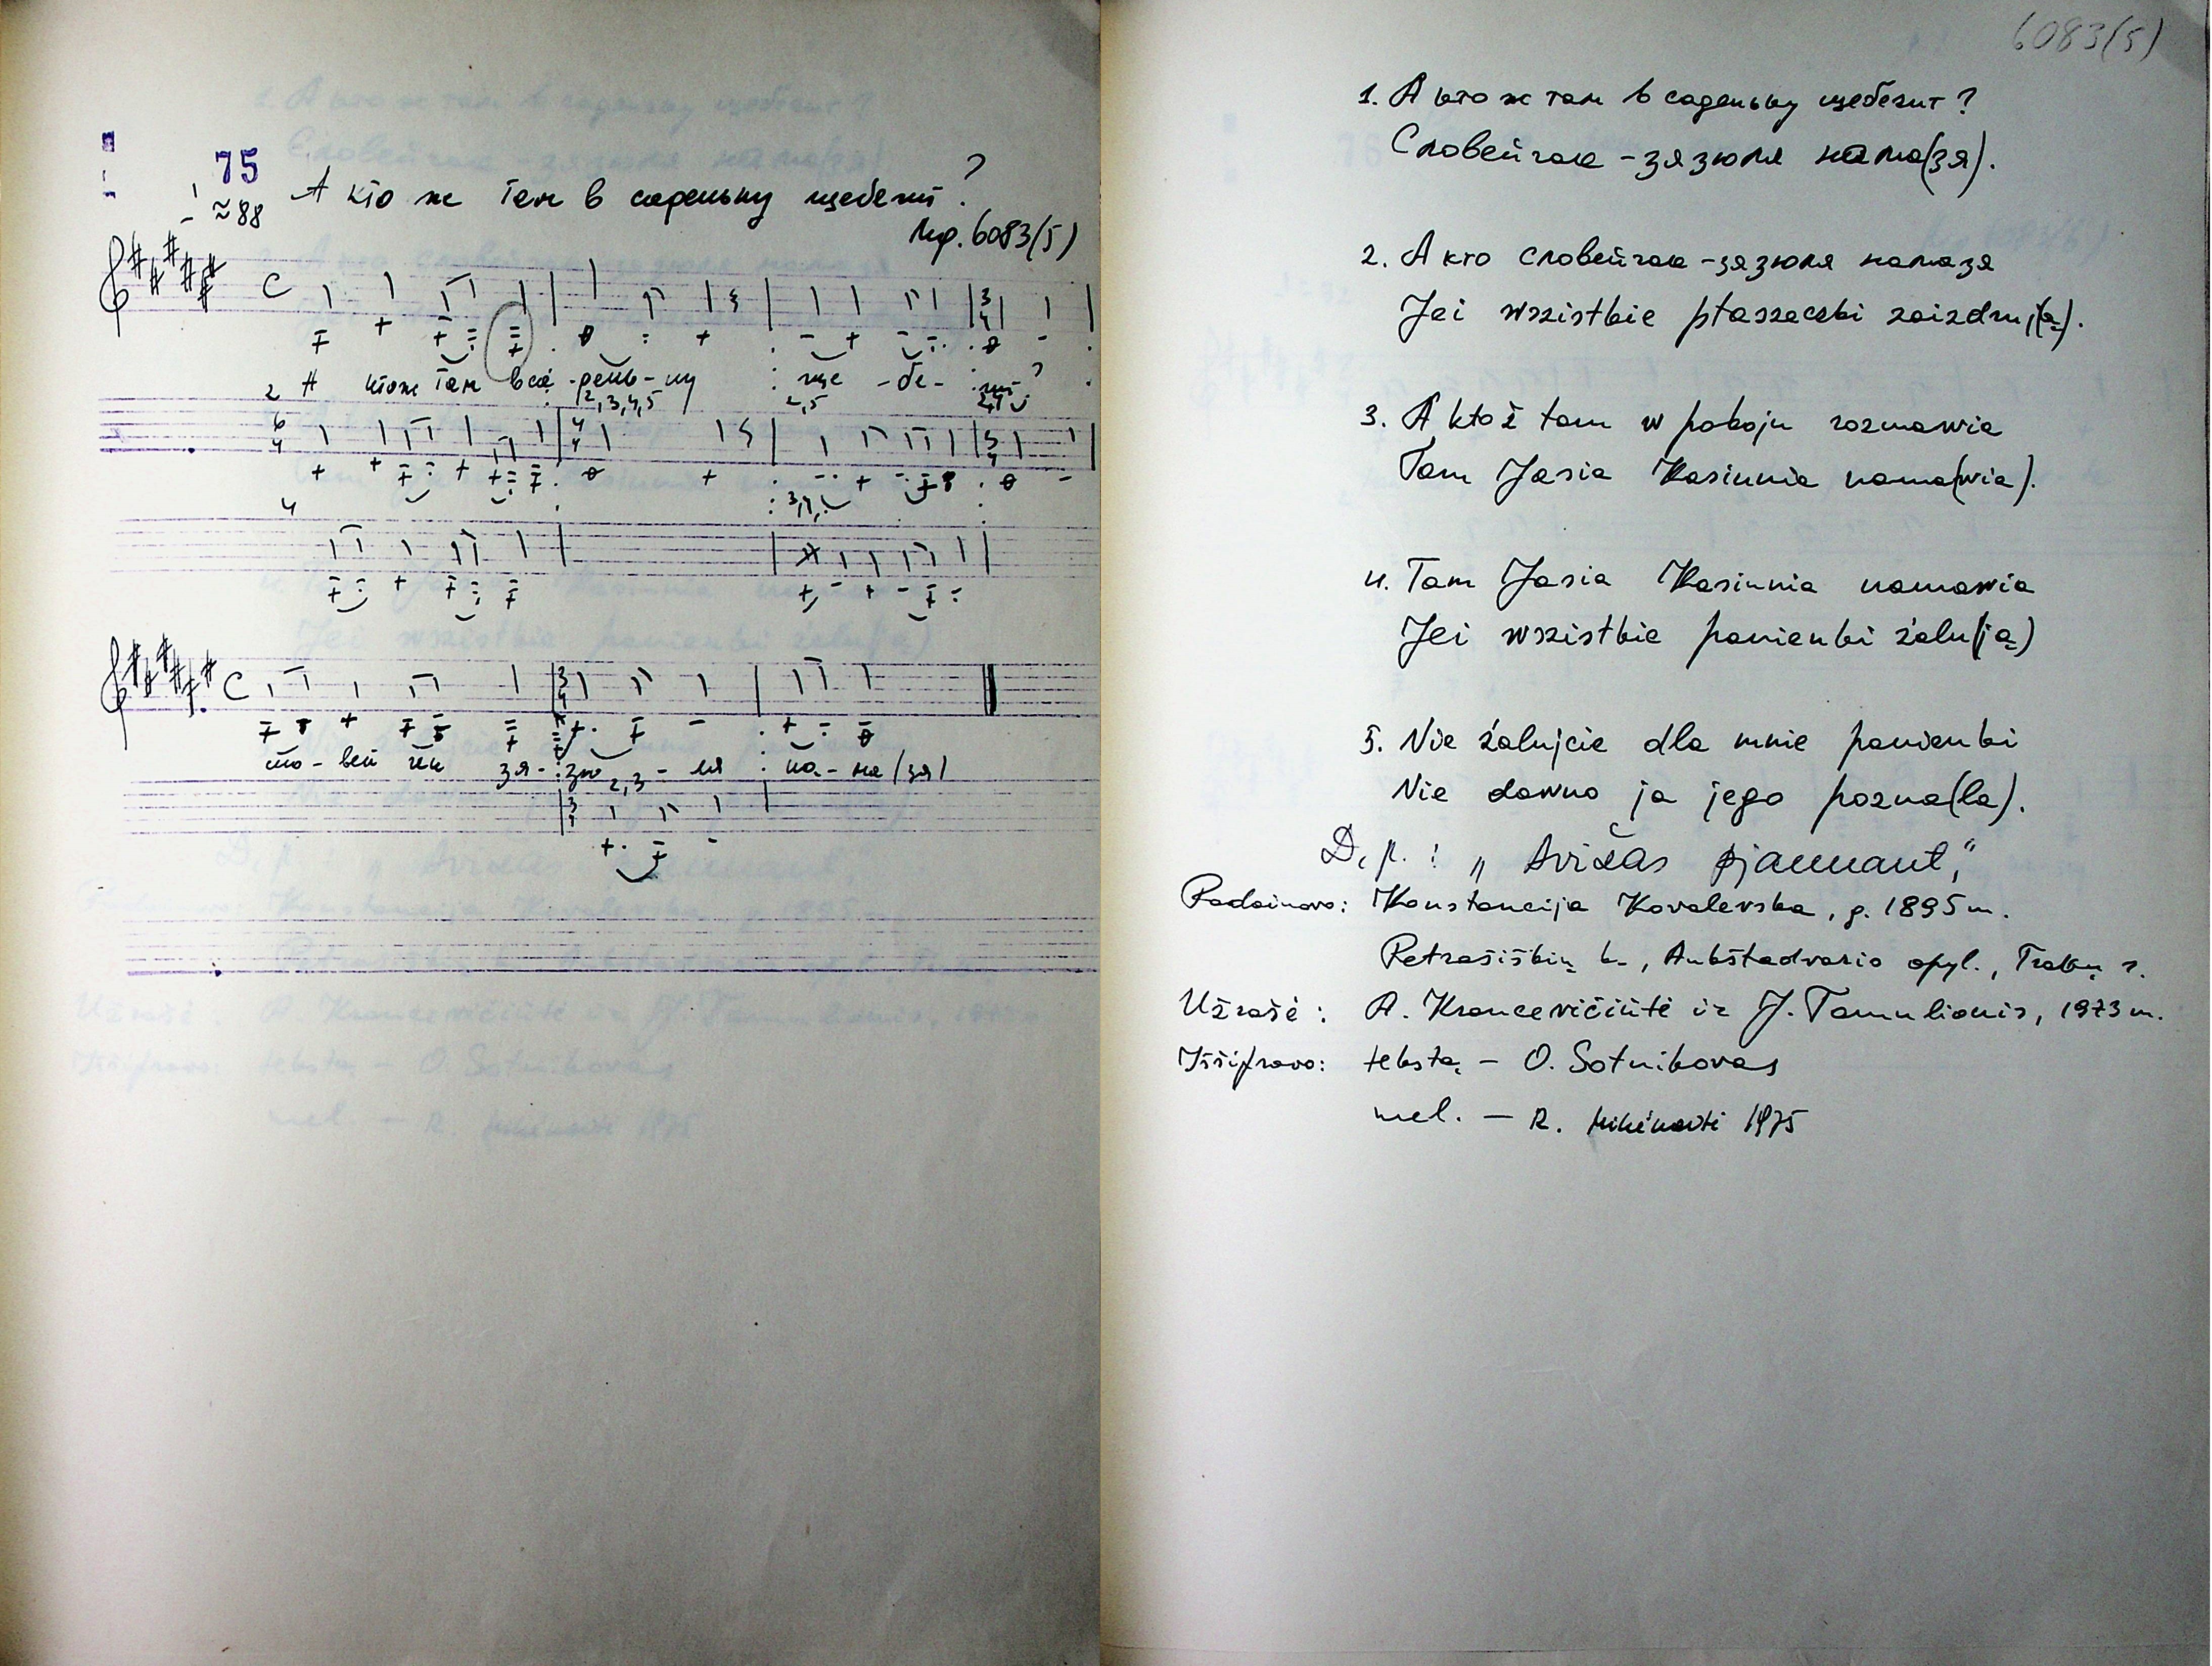 75
≈88
А кто ж там в саденьку щебечит?
Мф. 6083(5)
С
А ктож там вса-день-ку ще-бе-чит?
2,3,4,5 2,5
2
6
4
4
4
3,4
5
4
4
С
сло-вей чик зя-зю-ля на-ма(зя)
2,3
3
4
6083(5)
1. А кто ж там в саденьку щебечит?
Словейчак-зязюля нама(зя).
2. А кто словейчак-зязюля намазя
Jei wszistkie ptaszeczki zaizdru,(ą).
3. A ktož tam w pokoju rozmawia
Tam Jasia Kasiunia nama(wia).
4. Tam Jasia Kasiunia namawia
Jei wszistkie panienki žalu(ją)
5. Nie žalujcie dla mnie panienki
Nie dawno ja jego pozna(la).
D. p.: „Avižas pjaunant,“
Padainavo: Konstancija Kovalevska, g. 1895 m.
Petrašiškių k., Aukštadvario apyl., Trakų r.
Užrašė: A. Krancevičiūtė ir J. Tamulionis, 1973 m.
Iššifravo: tekstą – O. Sotnikovas
mel. – R. 1975